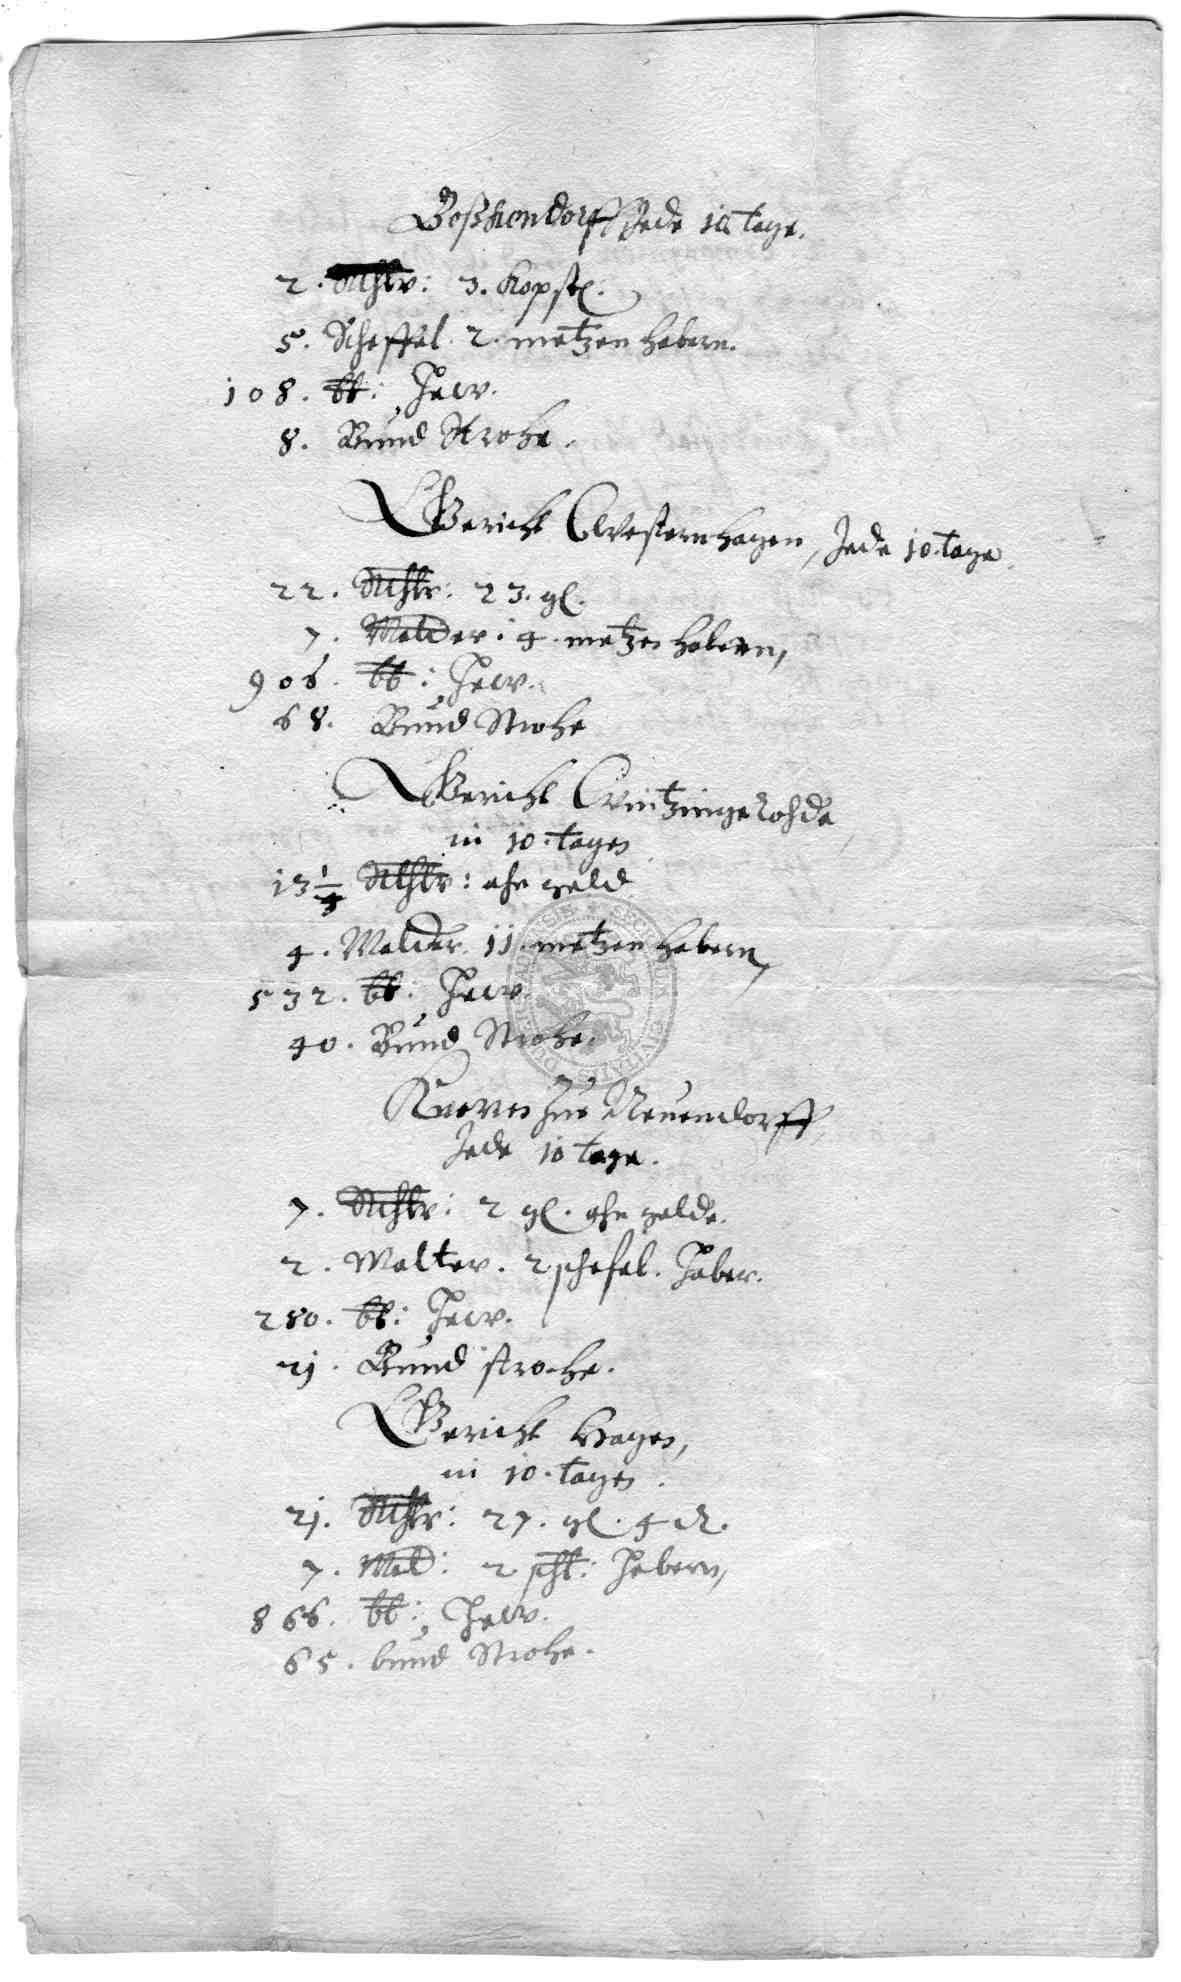 Boßkendorff Jede 10 tage.
2. Rthlr: 3. Kopst.
5. Scheffel. 2. metzen habern.
108. tt: Hew.
8. Bund Strohe.
Gericht Westernhagen, Jede 10. tage.
22. Rthlr: 23. gl.
7. Malder. 4. metzen habern,
906. tt: Hew.
68. Bund Strohe
Gericht Wintzingerohde
in 10. tagen
13 1/4 Rthlr: ahn geld
4. Malder. 11. metzen habern,
532. tt: Hew.
40. Bund Strohe.
zue Neuendorff,
Jede 10 tage.
7. Rthlr: 2 gl. ahn gelde.
2. Malter. 2 schefel. Haber.
280. tt: Hew.
21. Bund strohe.
Gericht Hagen,
in 10. tagen.
21. Rthlr: 27. gl. 4 d.
7. Mald: 2 schl: Habern,
866. tt: Hew.
65. bund Strohe.